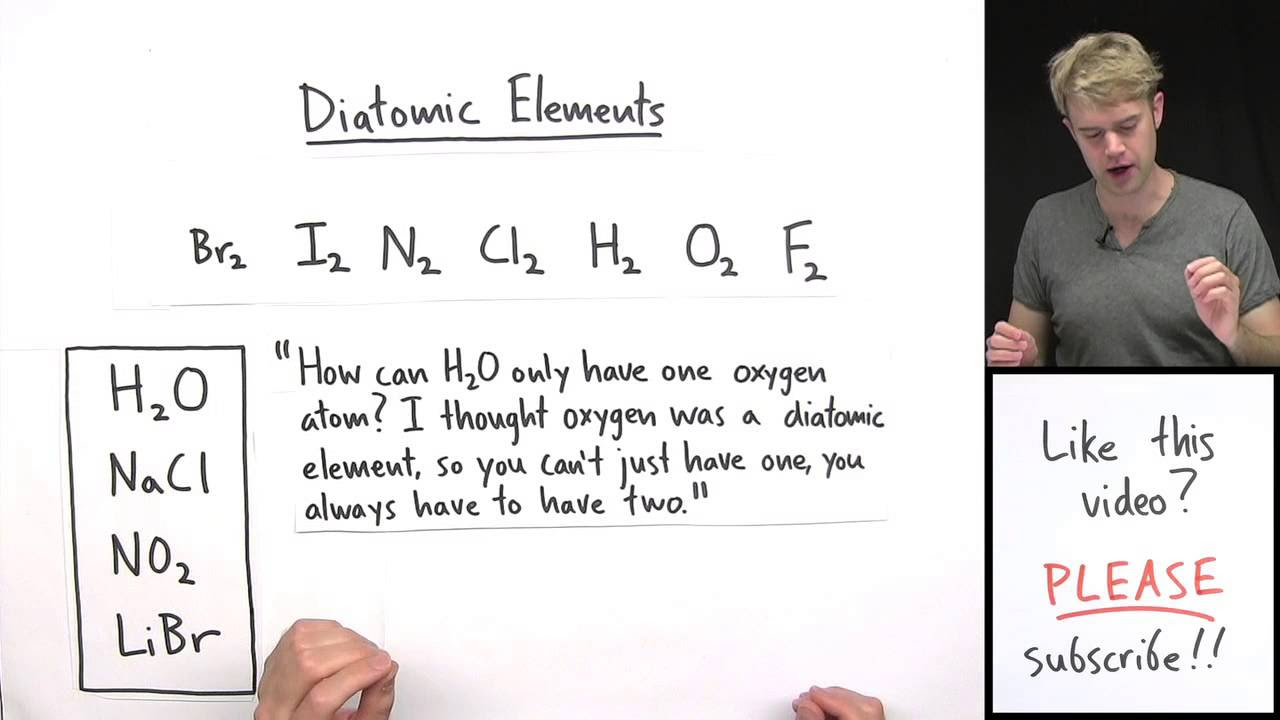 Diatomic Elements
Br₂ I₂ N₂ Cl₂ H₂ O₂ F₂
H₂O
NaCl
NO₂
LiBr
"How can H₂O only have one oxygen
atom? I thought oxygen was a diatomic
element, so you can't just have one, you
always have to have two."
Like this
video?
PLEASE
subscribe!!